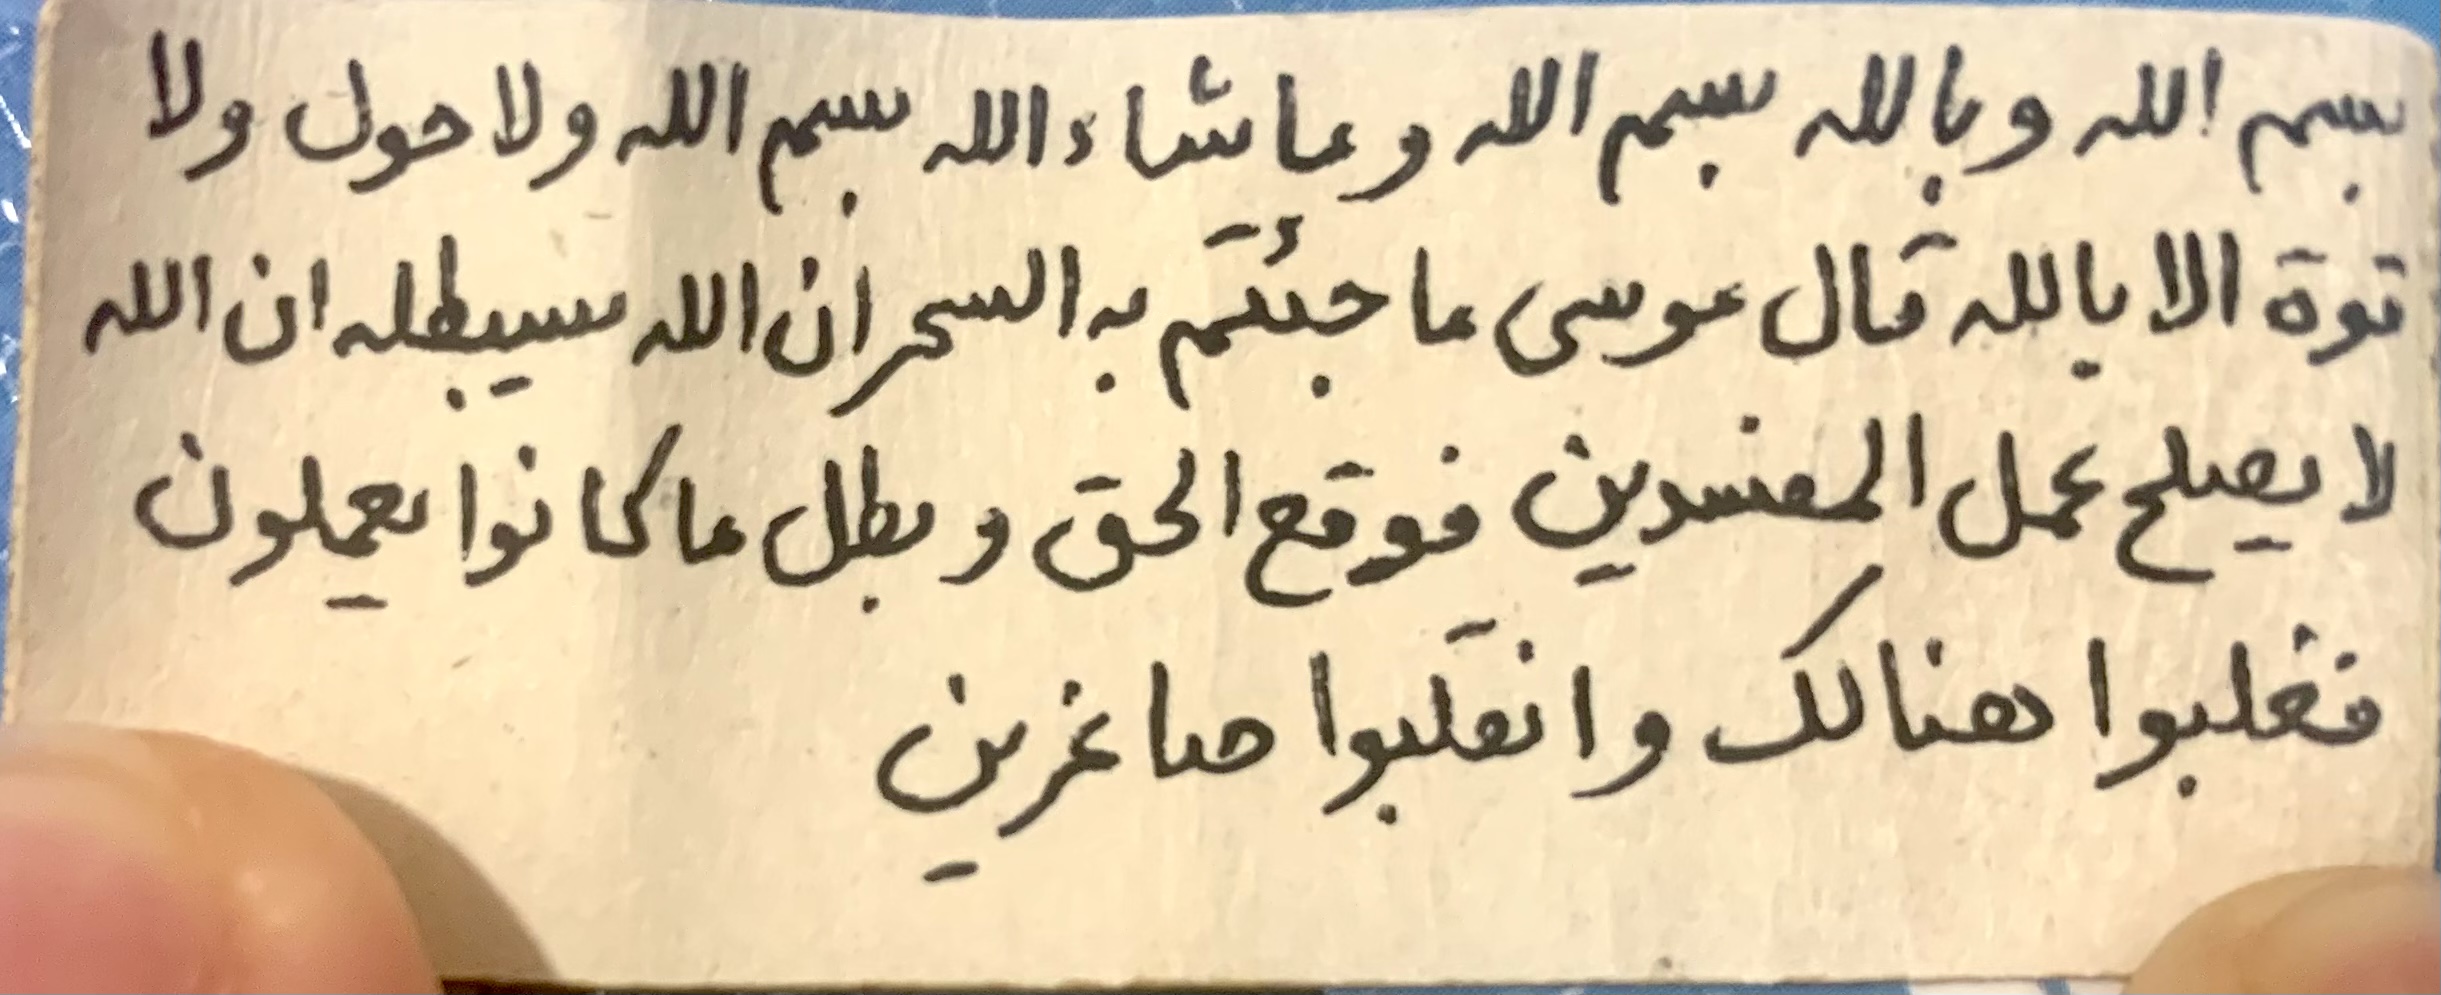 بسم الله وبالله بسم الله وماشاء الله بسم الله ولا حول ولا
قوة الا بالله قال موسى ما جئتم به السحر ان الله سيبطله ان الله
لا يصلح عمل المفسدين فوقع الحق وبطل ما كانوا يعملون
فغلبوا هنالك وانقلبوا صاغرين